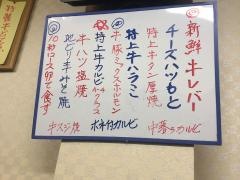 新鮮牛レバー
チーズハツもと
特上牛タン厚焼
中落ちカルビ
特上牛ハラミ
牛豚ミックスホルモン
特上牛カルビ
ボネ付カルビ
牛ハツ塩焼
地どりキモ焼
牛スジ焼
10秒ロース卵で食す